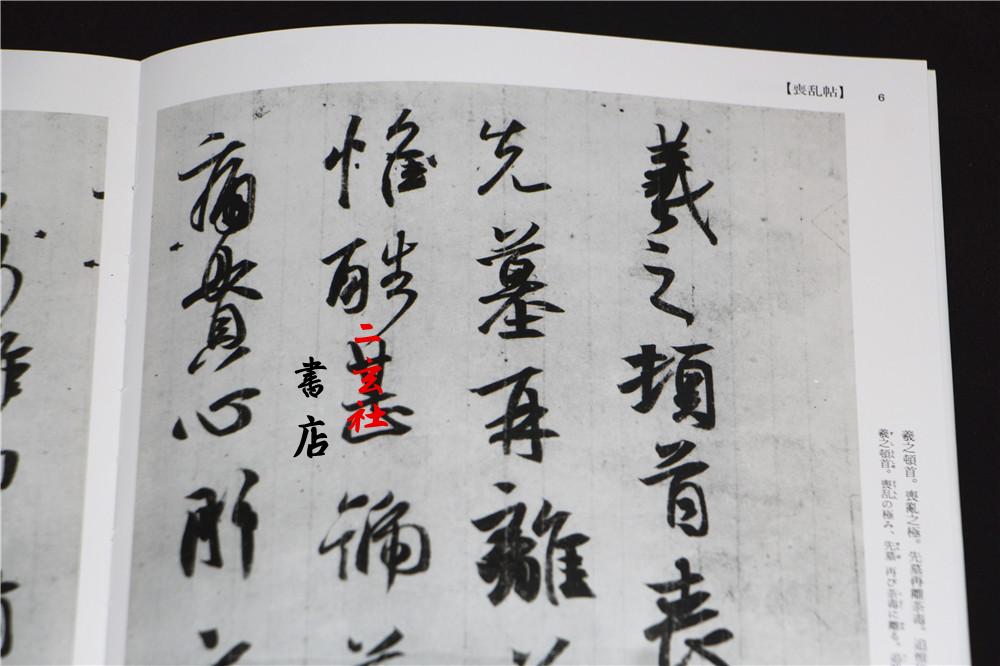 【喪乱帖】 6
羲之頓首喪
先墓再離
惟酷甚號
痛貫心肝
二玄社
書店
羲之頓首。喪亂之極。先墓再離荼毒。追
羲之頓首。喪乱の極み、先墓 再び荼毒に離る。追